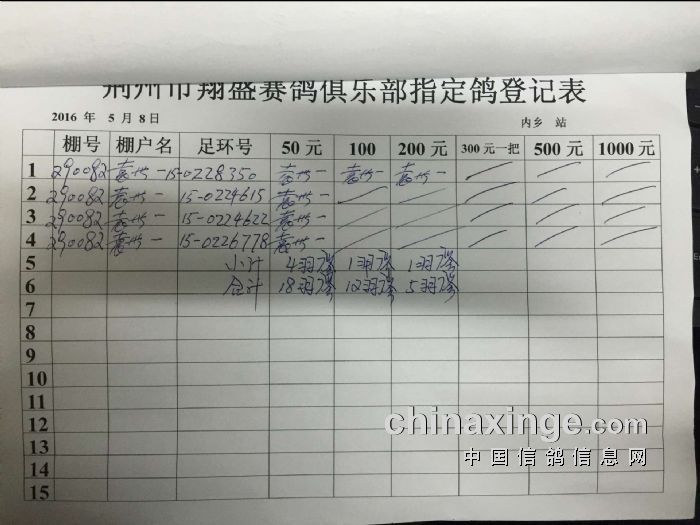 荆州市翔盛赛鸽俱乐部指定鸽登记表
2016 年 5 月 8 日 内乡 站
棚号 棚户名 足环号 50 元 100 200 元 300 元一把 500 元 1000 元
1 290082 15-0228350
2 290082 15-0224615
3 290082 15-0224622
4 290082 15-0226778
5 小计 4羽 1羽 1羽
6 合计 18羽 12羽 5羽
7
8
9
10
11
12
13
14
15
chinaxinge.com
中国信鸽信息网